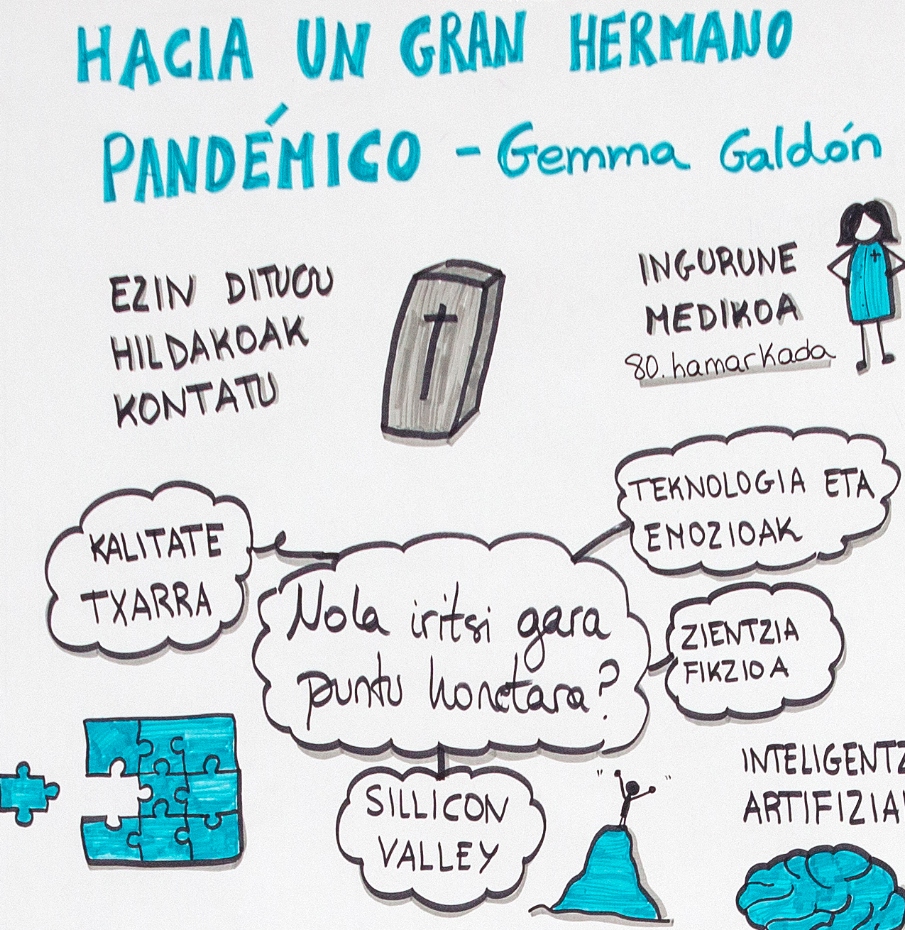 HACIA UN GRAN HERMANO
PANDÉMICO - Gemma Galdón
EZIN DITUGU
HILDAKOAK
KONTATU
INGURUNE
MEDIKOA
80. hamarkada
TEKNOLOGIA ETA
EMOZIOAK
KALITATE
TXARRA
Nola iritsi gara
puntu honetara?
ZIENTZIA
FIKZIOA
SILLICON
VALLEY
INTELIGENTZ
ARTIFIZIA